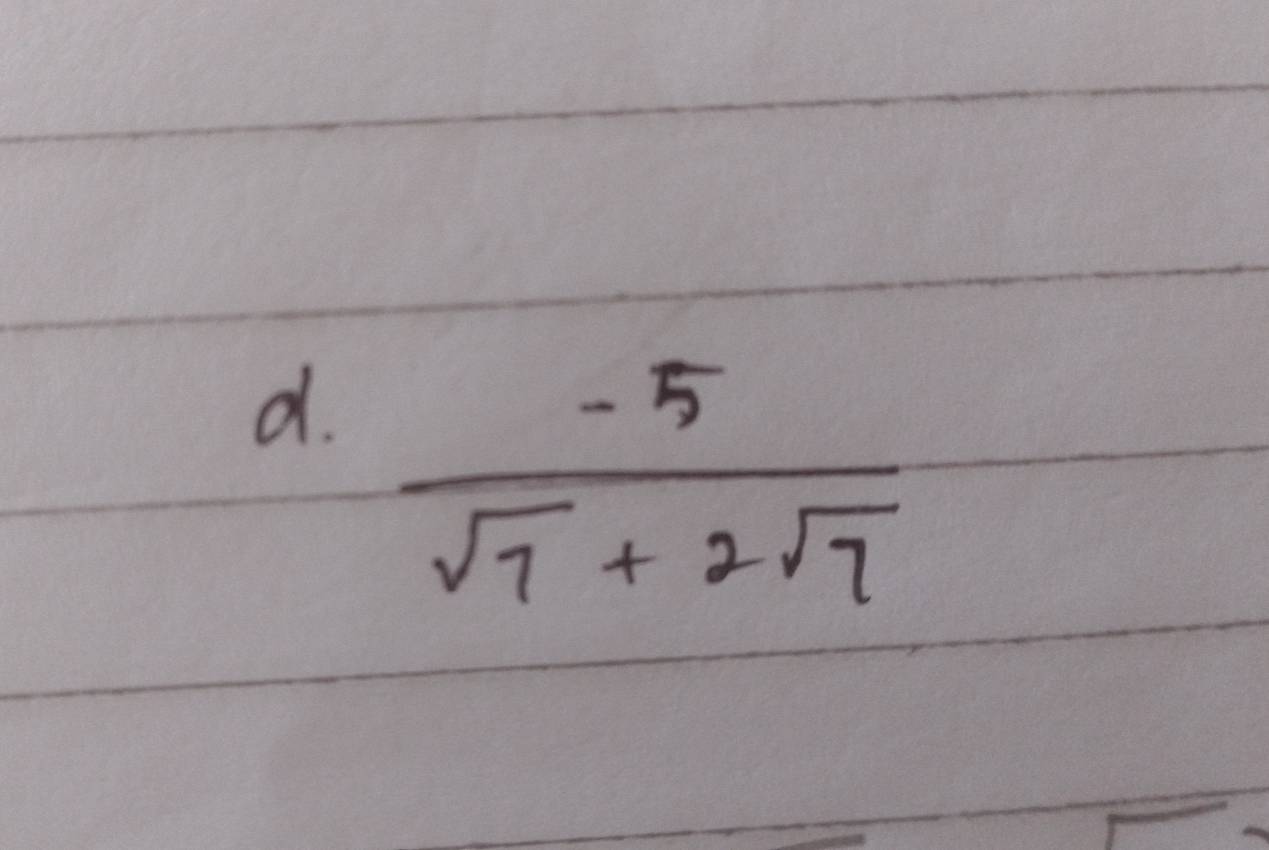 d. - 5
√7 + 2√7